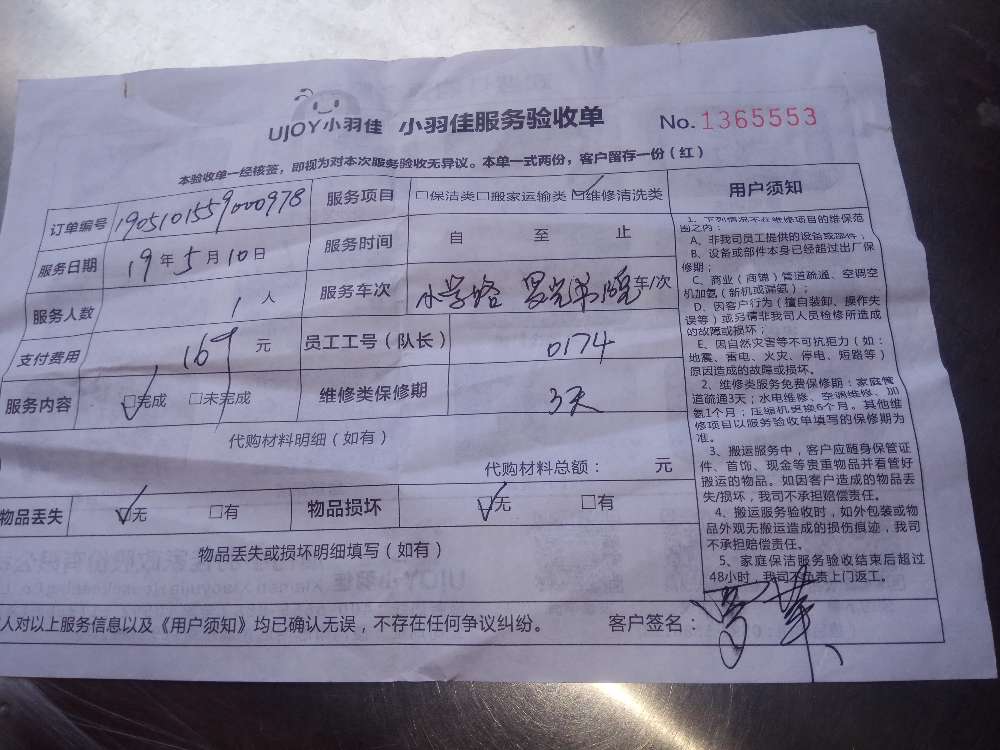 UJOY小羽佳 小羽佳服务验收单 No.1365553
本验收单一经核签，即视为对本次服务验收无异议。本单一式两份，客户留存一份（红）
订单编号 1905101559000978 服务项目 □保洁类□搬家运输类☑维修清洗类
服务日期 19年5月10日 服务时间 自 至 止
服务人数 1人 服务车次 小学路 车/次
支付费用 169元 员工工号（队长） 0174
服务内容 ☑完成 □未完成 维修类保修期 3天
代购材料明细（如有）
代购材料总额： 元
物品丢失 ☑无 □有 物品损坏 ☑无 □有
物品丢失或损坏明细填写（如有）
人对以上服务信息以及《用户须知》均已确认无误，不存在任何争议纠纷。 客户签名：
用户须知
1、下列情况不在维修项目的维保范
围之内：
A、非我司员工提供的设备或部件；
B、设备或部件本身已经超过出厂保
修期；
C、商业（商铺）管道疏通、空调空
机加氨（新机或漏氨）；
D、因客户行为（擅自装卸、操作失
误等）或另请非我司人员检修所造成
的故障或损坏；
E、因自然灾害等不可抗拒力（如：
地震、雷电、火灾、停电、短路等）
原因造成的故障或损坏。
2、维修类服务免费保修期：家庭管
道疏通3天；水电维修、空调维修、加
氨1个月；压缩机更换6个月。其他维
修项目以服务验收单填写的保修期为
准。
3、搬运服务中，客户应随身保管证
件、首饰、现金等贵重物品并看管好
搬运的物品。如因客户造成的物品丢
失/损坏，我司不承担赔偿责任。
4、搬运服务验收时，如外包装或物
品外观无搬运造成的损伤痕迹，我司
不承担赔偿责任。
5、家庭保洁服务验收结束后超过
48小时，我司不负责上门返工。